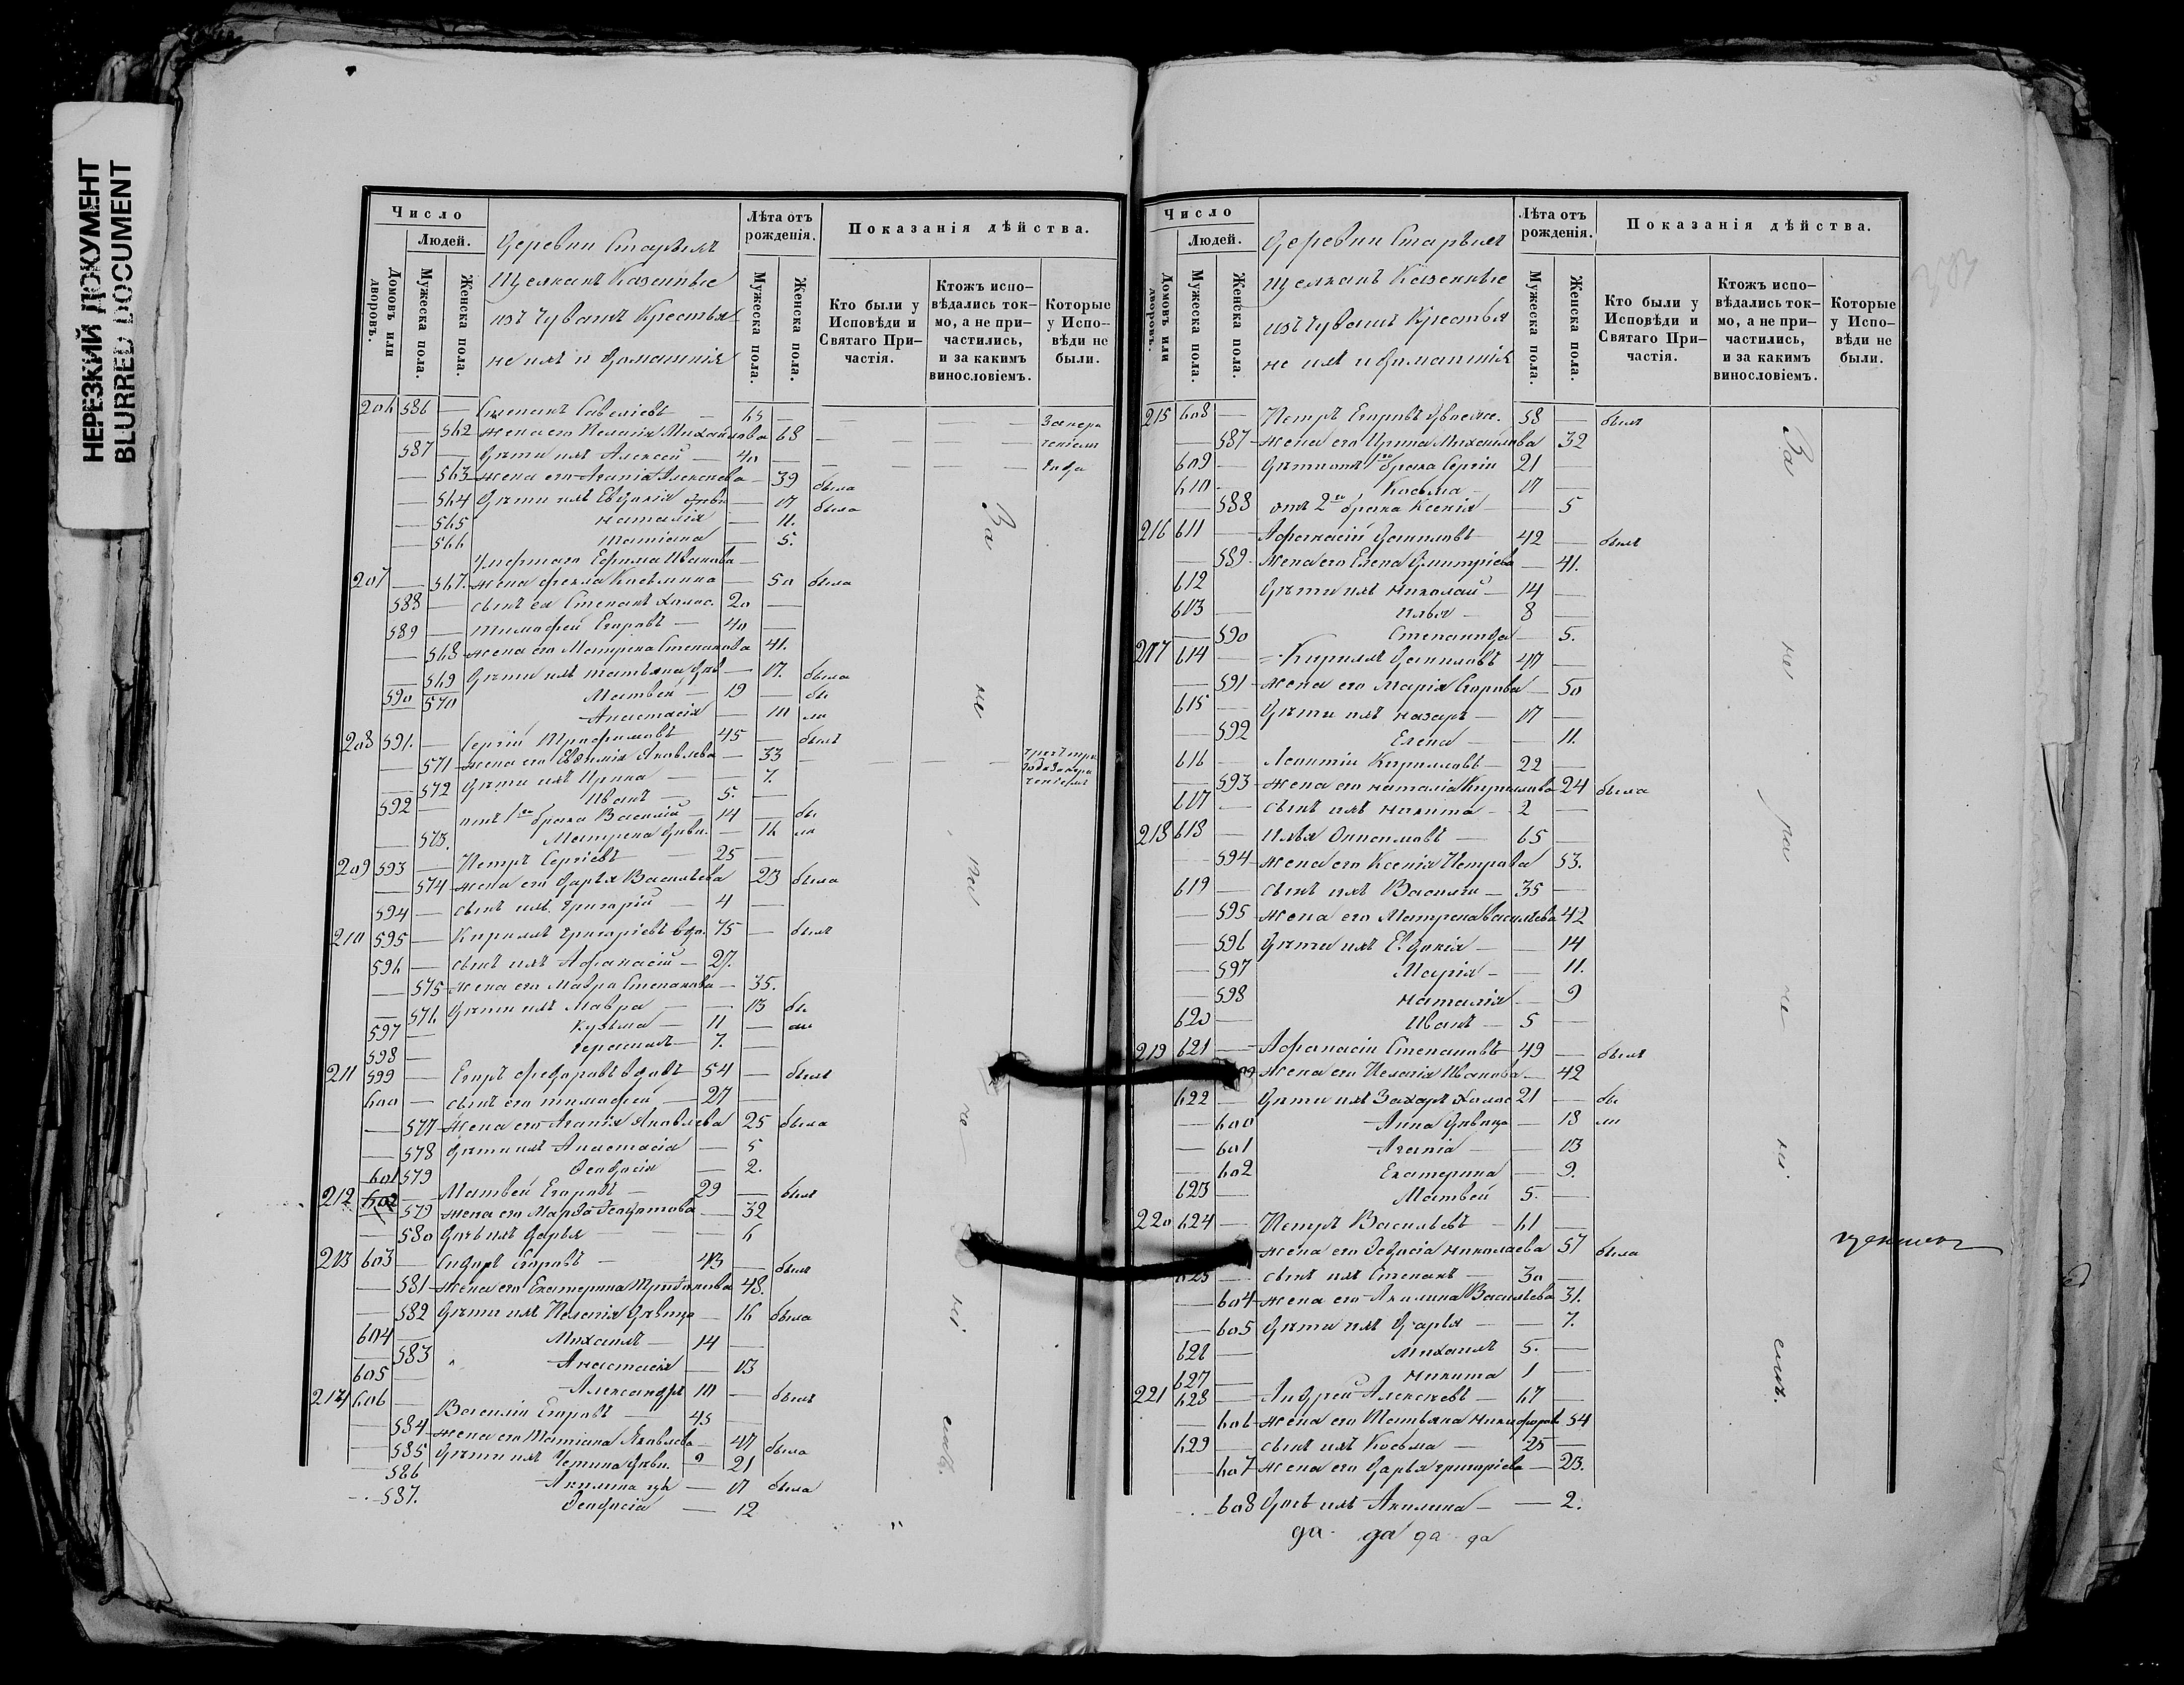 НЕРЕЗКИЙ ДОКУМЕНТ
BLURRED DOCUMENT
Число
Людей.
Домовъ или дворовъ.
Мужеска пола.
Женска пола.
Деревни Старыхъ
Щелканъ Казенные
изъ Чувашъ Крестья
не ихъ и домашнія
Лѣта отъ рожденія.
Мужеска пола.
Женска пола.
Показанія дѣйства.
Кто были у Исповѣди и Святаго Причастія.
Ктожъ исповѣдались токмо, а не причастились, и за какимъ винословіемъ.
Которые у Исповѣди не были.
206 586 — Степанъ Савеліевъ — 65 —
— 562 жена его Пелагія Михайлова 68
587 — дѣти ихъ Алексей — 40 —
— 563 жена его Агапія Алексѣева — 39 была
— 564 дѣти ихъ Евдокія — 17 была
— 565 Наталія — 11.
— 566 Татіана — 5.
Умершаго Ефрема Иванова —
207 — 567. жена Фекла Козьмина — 50 была
588 — сынъ ея Степанъ холос. 20 —
589 — Тимофей Егоровъ — 40 —
— 568 жена его Матрена Степанова 41.
— 569 дѣти ихъ Татьяна — 17. была
590 570 Матвей — 19 — бы
Анастасія — 10 ли
208 591. — Сергій Трофимовъ 45 — былъ
— 571 жена его Евфимія Яковлева — 33
— 572 дѣти ихъ Ирина — 7.
592 — Иванъ — 5. —
отъ 1го брака Василій — 14 — бы
— 573. Матрена — 16 ли
209 593 — Петръ Сергіевъ — 25 —
— 574 жена его Дарья Васильева 23 была
594 — сынъ ихъ Григорій — 4 —
210 595 — Кириллъ Григоріевъ вдо. 75 — былъ
596 — сынъ ихъ Афанасій — 27.
— 575 жена его Мавра Степанова — 35.
— 576. дѣти ихъ Мавра — 13 бы
597 — Кузьма — 11 — ли
598 — Герасимъ — 7. —
211 599 — Егоръ Федоровъ вдовъ 54 — былъ
600 — сынъ его Тимофей — 27 —
— 577 жена его Агапія Яковлева 25 была
— 578 дѣти ихъ Анастасія — 5
601 579 Феодосія — 2.
212 602 — Матвей Егоровъ — 29 — былъ
— 579 жена его Марфа Федотова — 32
— 580 дочь ихъ Дарья — 6
213 603 — Сидоръ Егоровъ — 43 — былъ
— 581 жена его Екатерина Трифонова 48.
— 582 дѣти ихъ Пелагія дѣвица 16 была
604 — Михаилъ — 14 —
583 Анастасія — 13
605 — Александръ 10 —
214 606 — Василій Егоровъ — 45 — былъ
584 жена его Татіана Яковлева — 47
585 дѣти ихъ 21 была
586 Акилина — 17 была
587. Феодосія — 12
За
не
ра
че
ні
емъ.
Число
Людей.
Домовъ или дворовъ.
Мужеска пола.
Женска пола.
Деревни Старыхъ
Щелканъ Казенные
изъ Чувашъ Крестья
не ихъ и домашнія
Лѣта отъ рожденія.
Мужеска пола.
Женска пола.
Показанія дѣйства.
Кто были у Исповѣди и Святаго Причастія.
Ктожъ исповѣдались токмо, а не причастились, и за какимъ винословіемъ.
Которые у Исповѣди не были.
215 608 — Петръ Егоровъ 58 — былъ
— 587 жена его Ирина Михайлова 32
609 — дѣти отъ 1го брака Сергій 21 —
610 — Косьма — 17 —
— 588 отъ 2го брака Ксенія — 5
216 611 — Афанасій Даниловъ — 42 — былъ
— 589 жена его Елена Дмитріева — 41.
612 — дѣти ихъ Николай — 14 —
613 — Илья — 8 —
— 590 Степанида — 5.
217 614 — Кириллъ Даниловъ 47 —
— 591 жена его Марія Егорова — 50
615 — дѣти ихъ Назаръ — 17 —
— 592 Елена — 11.
616 — Леонтій Кирилловъ — 22 —
— 593 жена его Наталія Кириллова 24 была
617 — сынъ ихъ Никита — 2 —
218 618 — Илья Онисимовъ — 65 —
— 594 жена его Ксенія Петрова 53.
619 — сынъ ихъ Василій — 35 —
— 595 жена его Матрена Васильева 42
— 596 дѣти ихъ Евдокія — 14
— 597 Марія — 11.
— 598 Наталія — 9
620 — Иванъ — 5 —
219 621 — Афанасій Степановъ 49 — былъ
жена его Пелагія Иванова — 42
622 — дѣти ихъ Захаръ холос 21 — бы
— 600 Анна дѣвица — 18 ли
— 601 Агапія — 13
— 602 Екатерина — 9.
623 — Матвей 5. —
220 624 — Петръ Васильевъ — 61 —
жена его Федосія Николаева 57 была
625 — сынъ ихъ Степанъ — 30 —
— 604 жена его Акилина Васильева 31.
— 605 дѣти ихъ Дарья — 7.
626 — Михаилъ 5. —
627 — Никита 1 —
221 628 — Андрей Алексѣевъ — 67 —
— 606 жена его Татьяна Никифоров 54
629 — сынъ ихъ Косьма — 25 —
— 607 жена его Дарья Григоріева — 23.
608 дочь ихъ Акилина — 2.
да да да да
За
не
ра
че
ні.
емъ.